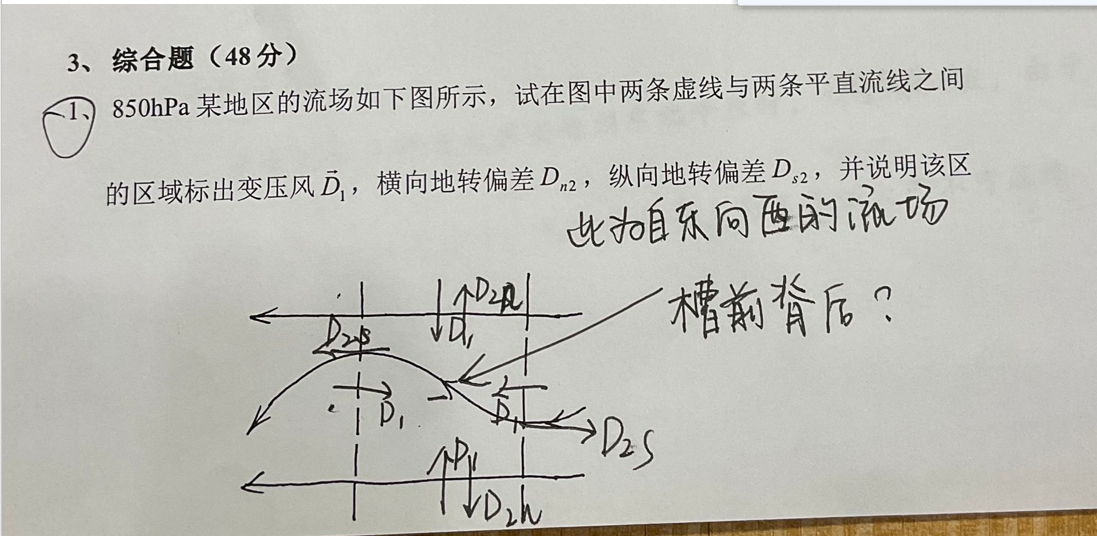 3、 综合题（48分）
1、 850hPa 某地区的流场如下图所示，试在图中两条虚线与两条平直流线之间
的区域标出变压风 D⃗₁，横向地转偏差 Dₙ₂，纵向地转偏差 Dₛ₂，并说明该区
此为自东向西的流场
D₂ₙ
D₁
槽前脊后？
D₂ₛ
D₁
D₁
D₂ₛ
D₁
D₂ₙ